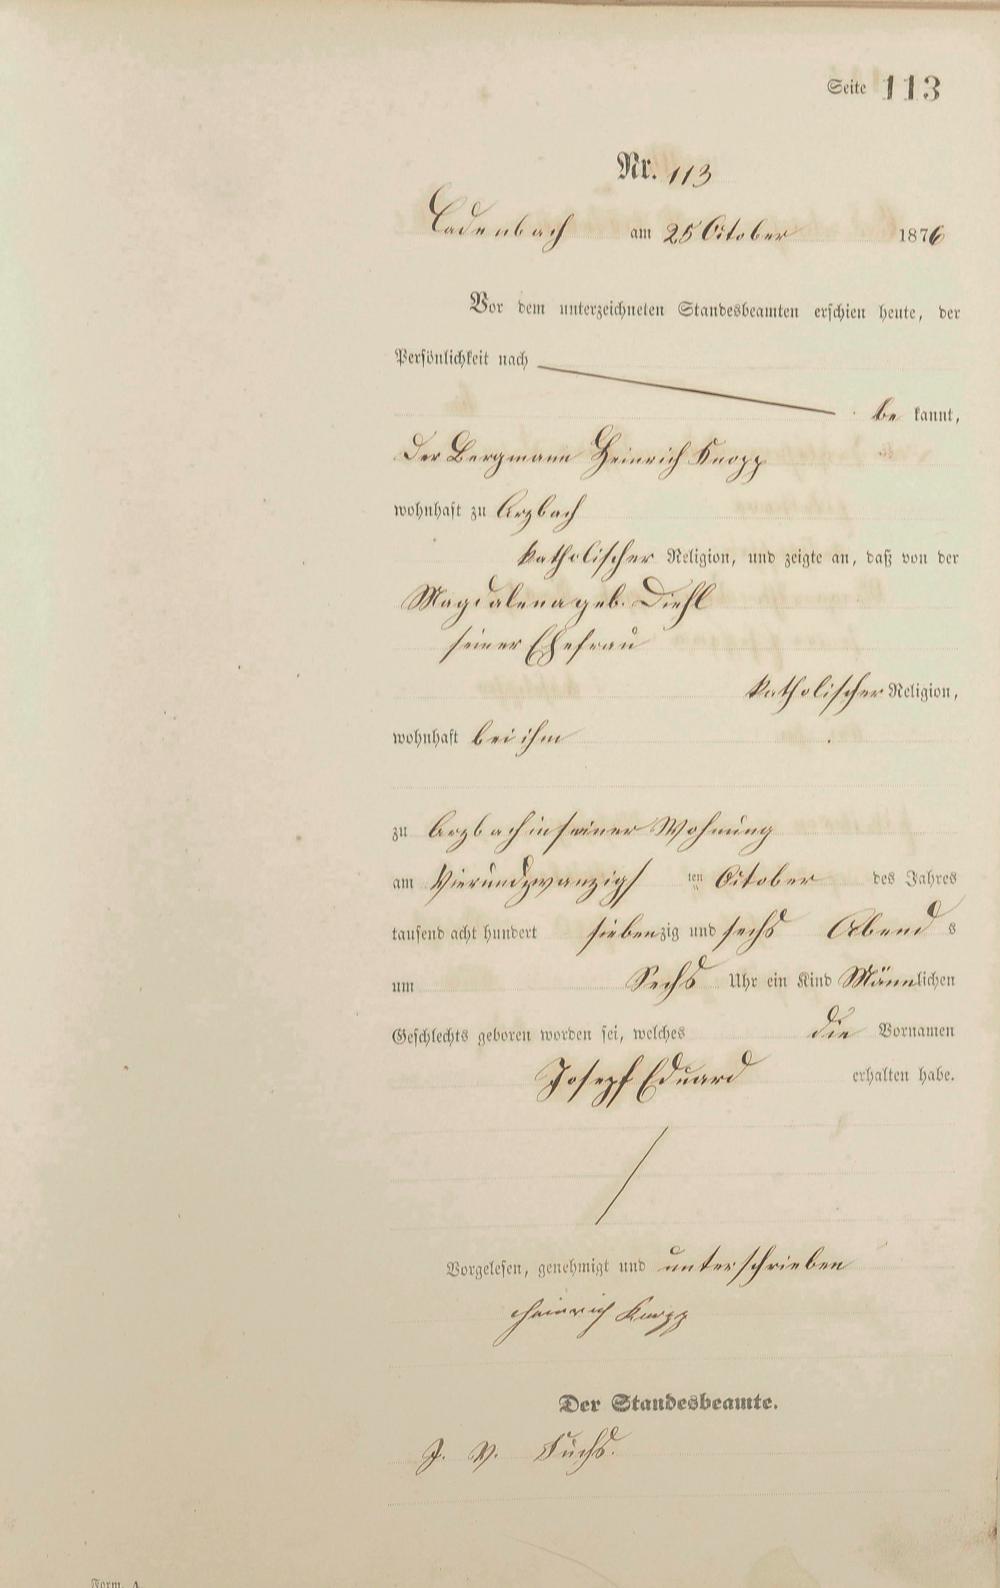 Seite 113
Nr. 113
Cadenbach am 25 October 1876
Vor dem unterzeichneten Standesbeamten erschien heute, der
Persönlichkeit nach
be kannt,
der Bergmann Heinrich Knopp
wohnhaft zu Arzbach
katholischer Religion, und zeigte an, daß von der
Magdalena geb. Diehl
seiner Ehefrau
katholischer Religion,
wohnhaft bei ihm
zu Arzbach in seiner Wohnung
am Vierundzwanzigs ten October des Jahres
tausend acht hundert siebenzig und sechs Abend s
um Sechs Uhr ein Kind Männlichen
Geschlechts geboren worden sei, welches die Vornamen
Joseph Eduard erhalten habe.
Vorgelesen, genehmigt und unterschrieben
Heinrich Knopp
Der Standesbeamte.
J. V. Fuchs.
Form. A.